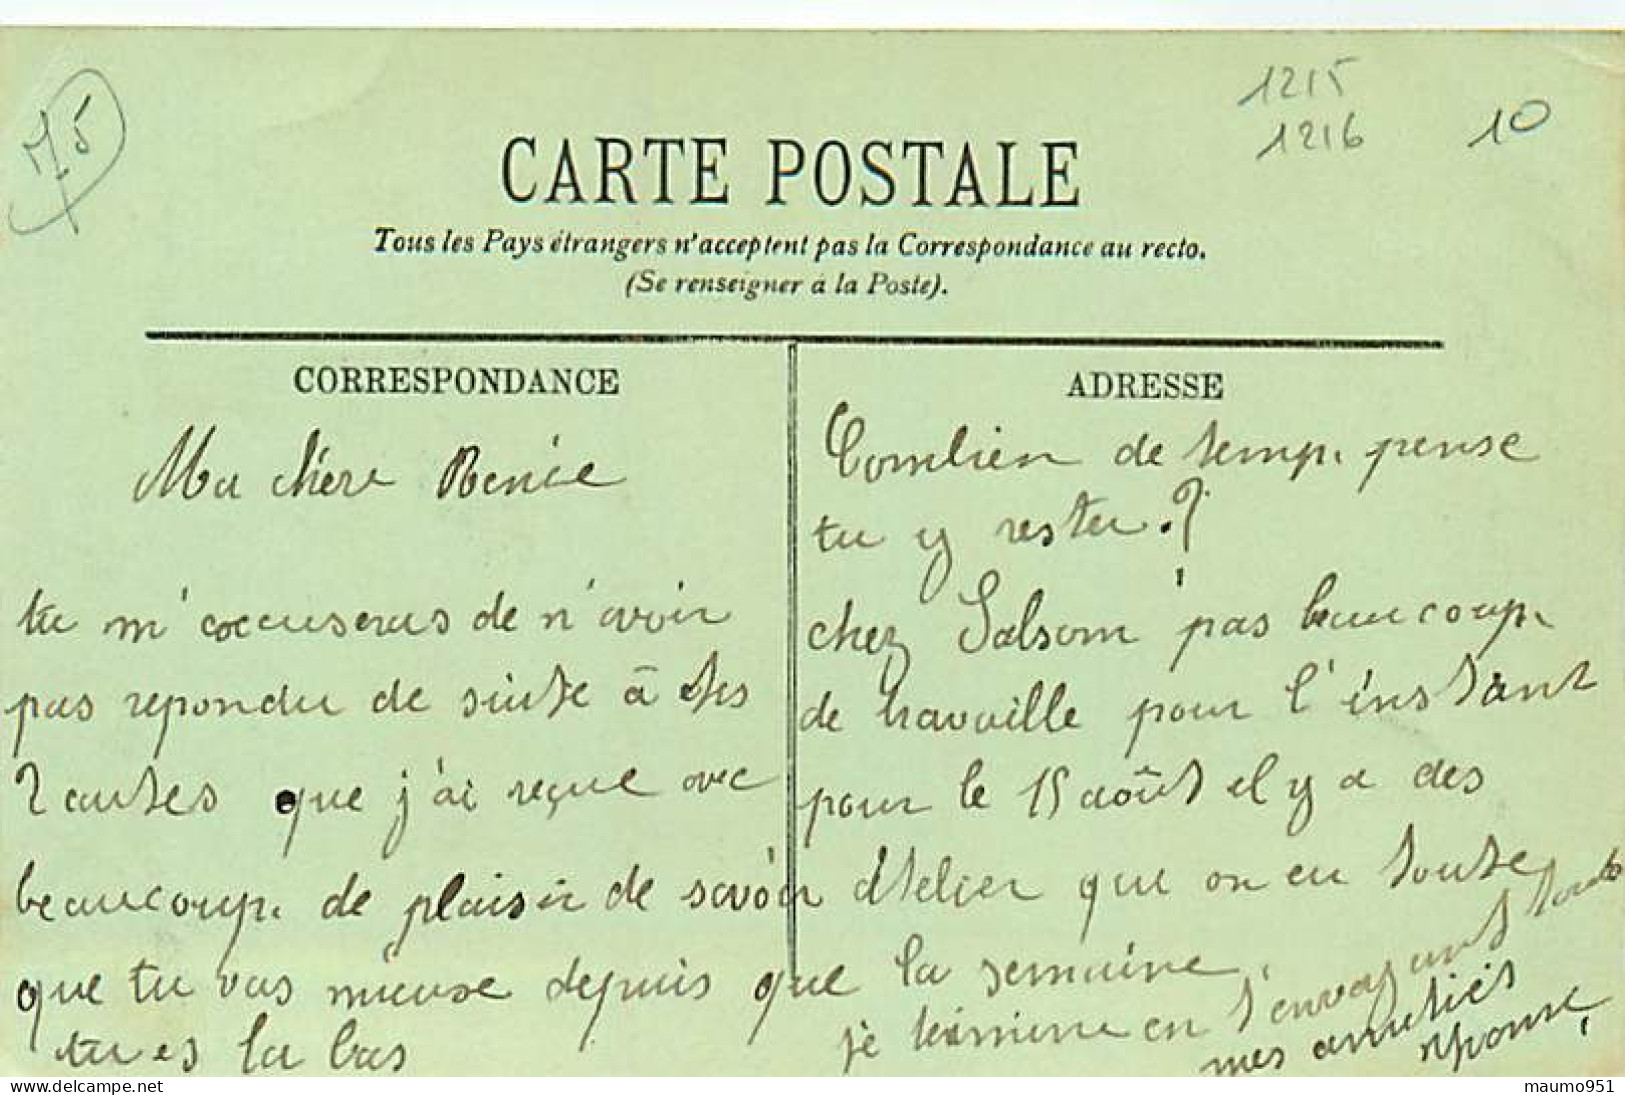 75
1215
1216
10
CARTE POSTALE
Tous les Pays étrangers n'acceptent pas la Correspondance au recto.
(Se renseigner à la Poste).
CORRESPONDANCE
Ma chère Renée
tu m'accuseras de n'avoir
pas repondu de suite à tes
2 cartes que j'ai reçue avec
beaucoup. de plaisir de savoir
que tu vas mieuse depuis que
tu es la bas
ADRESSE
Combien de temp. pense
tu y rester ?
chez Salsom pas beaucoup.
de travaille pour l'instant
pour le 15 août il y a des
atelier que on eu toute
la semaine.
je termine en t'envoyant toute
mes amitiés
réponse,
maumo951